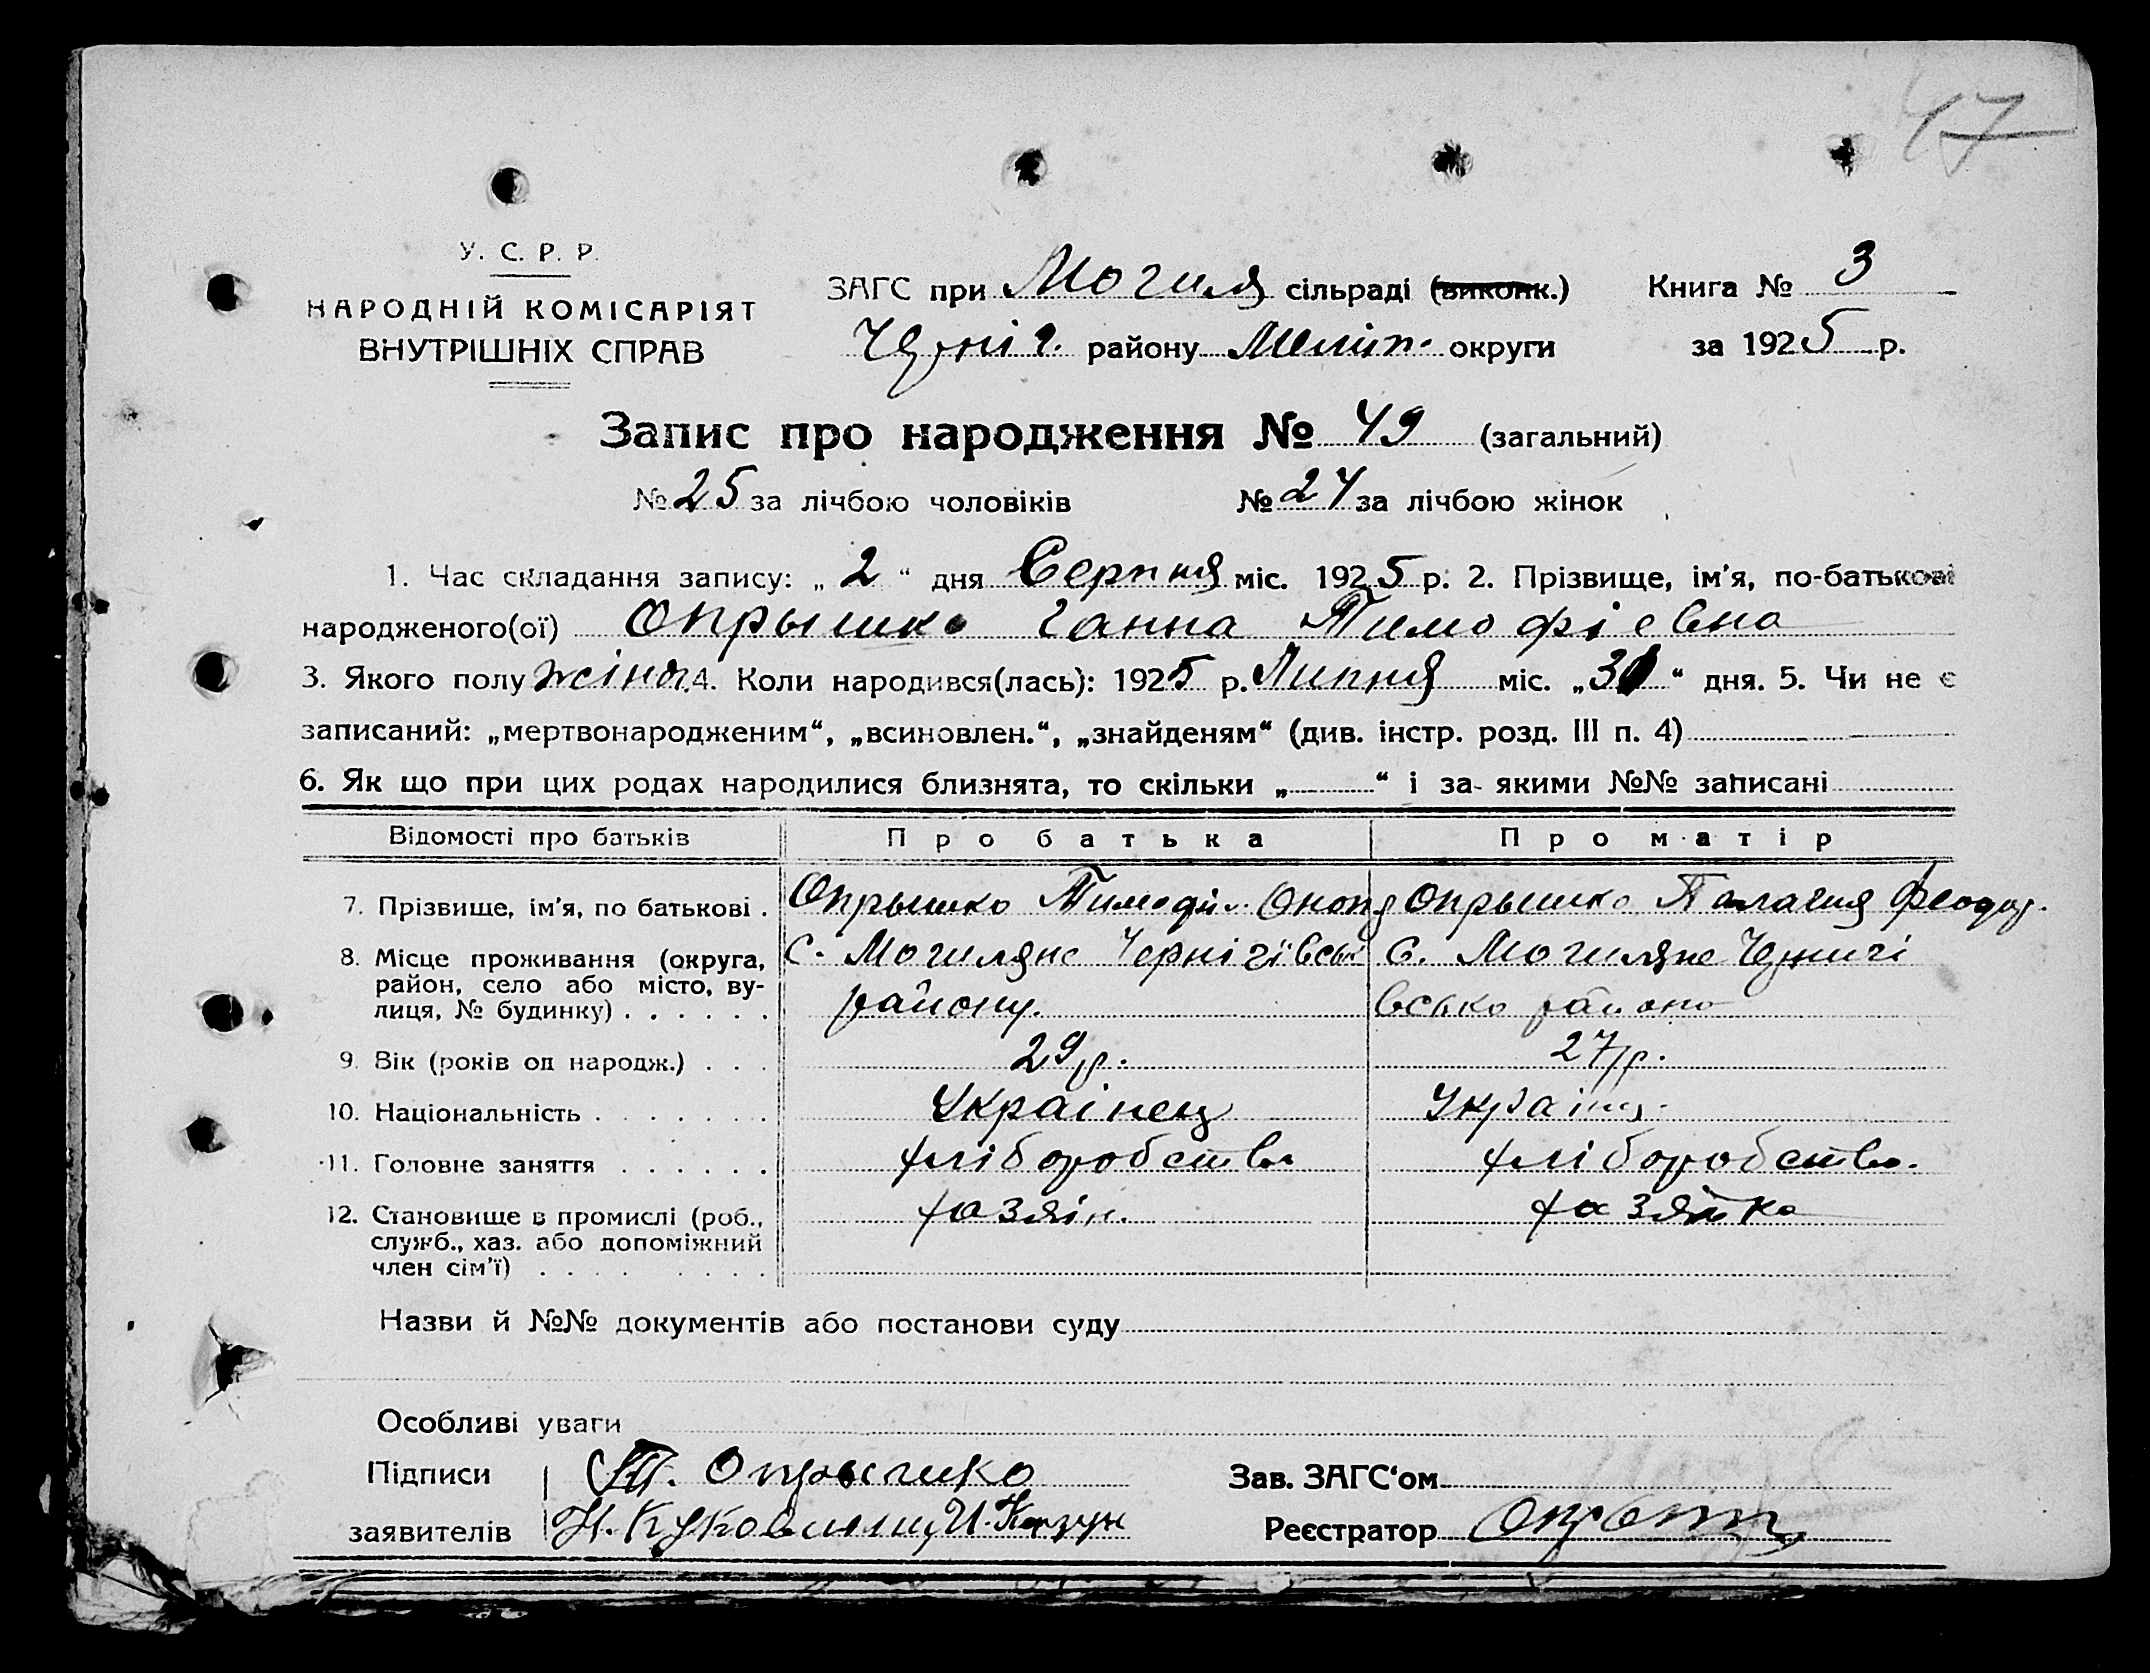 47
У. С. Р. Р.
НАРОДНІЙ КОМІСАРІЯТ
ВНУТРІШНІХ СПРАВ
ЗАГС при Могиля сільраді (виконк.) Книга № 3
Черніг. району Меліт. округи за 1925 р.
Запис про народження № 49 (загальний)
№ 25 за лічбою чоловіків № 24 за лічбою жінок
1. Час складання запису: „ 2 “ дня Серпня міс. 1925 р. 2. Прізвище, ім'я, по-батькові
народженого(ої) Опрышко Ганна Тимофіевна
3. Якого полу жіноч. 4. Коли народився(лась): 1925 р. Липня міс. „ “ дня. 5. Чи не є
записаний: „мертвонародженим“, „всиновлен.“, „знайденям“ (див. інстр. розд. III п. 4)
6. Як що при цих родах народилися близнята, то скільки „ “ і за якими №№ записані
Відомості про батьків Про батька Про матір
7. Прізвище, ім'я, по батькові . Опрышко Тимофій Опрышко Палагия Феодор.
8. Місце проживання (округа, С. Могиляне Чернігівськ С. Могиляне Чернигі
район, село або місто, ву-
лиця, № будинку) . . . . . . району. всько району
9. Вік (років од народж.) . . . 29 р. 27 р.
10. Національність . . . . . . . Украінец Украінц.
11. Головне заняття . . . . . . хліборобство хліборобство.
12. Становище в промислі (роб., хазяін. хазяйка
служб., хаз. або допоміжний
член сім'ї) . . . . . . . .
Назви й №№ документів або постанови суду
Особливі уваги
Підписи Т. Опрышко Зав. ЗАГС'ом
заявителів Реєстратор